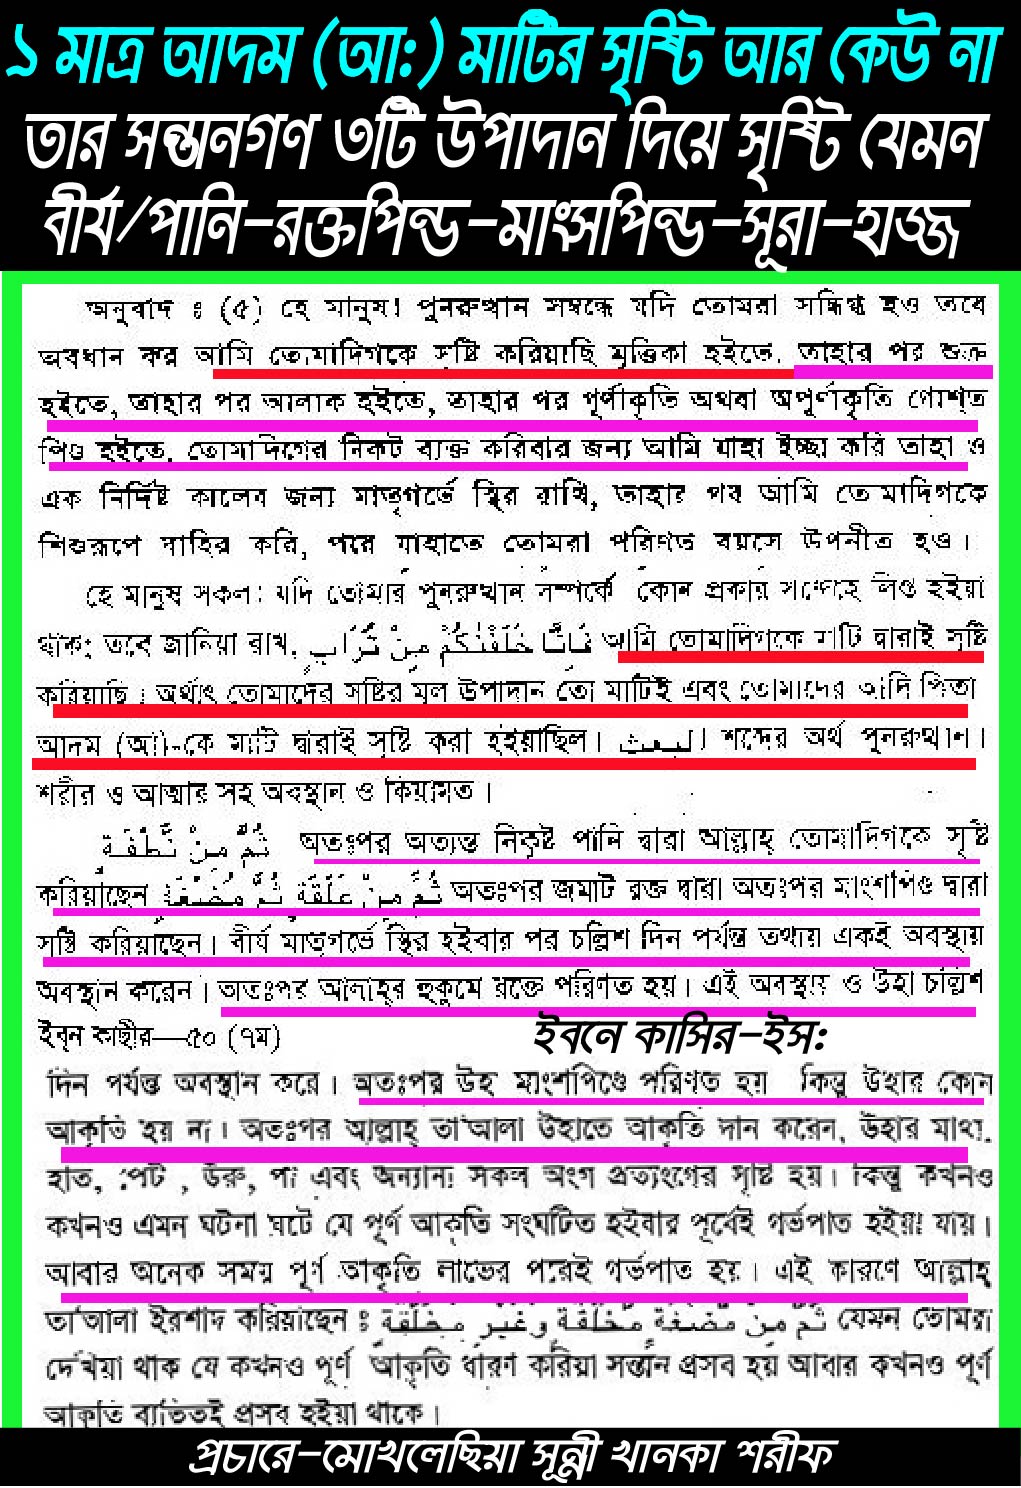 ১ মাত্র আদম (আ:) মাটির সৃষ্টি আর কেউ না
তার সন্তানগণ ৩টি উপাদান দিয়ে সৃষ্টি যেমন
বীর্য/পানি-রক্তপিন্ড-মাংসপিন্ড-সূরা-হাজ্জ
অনুবাদ : (৫) হে মানুষ! পুনরুত্থান সম্বন্ধে যদি তোমরা সন্দিগ্ধ হও তবে
অবধান কর আমি তোমাদিগকে সৃষ্টি করিয়াছি মৃত্তিকা হইতে, তাহার পর শুক্র
হইতে, তাহার পর আলাক হইতে, তাহার পর পূর্ণাকৃতি অথবা অপূর্ণাকৃতি গোশ্ত
পিণ্ড হইতে, তোমাদিগের নিকট ব্যক্ত করিবার জন্য আমি যাহা ইচ্ছা করি তাহা ও
এক নির্দিষ্ট কালের জন্য মাতৃগর্ভে স্থির রাখি, তাহার পর আমি তোমাদিগকে
শিশুরূপে বাহির করি, পরে যাহাতে তোমরা পরিণত বয়সে উপনীত হও।
হে মানুষ সকল! যদি তোমার পুনরুত্থান সম্পর্কে কোন প্রকার সন্দেহে লিপ্ত হইয়া
থাক; তবে জানিয়া রাখ, فَاِنَّا خَلَقْنٰكُمْ مِنْ تُرَابٍ আমি তোমাদিগকে মাটি দ্বারাই সৃষ্টি
করিয়াছি। অর্থাৎ তোমাদের সৃষ্টির মূল উপাদান তো মাটিই এবং তোমাদের আদি পিতা
আদম (আ)-কে মাটি দ্বারাই সৃষ্টি করা হইয়াছিল। البعث শব্দের অর্থ পুনরুত্থান।
শরীর ও আত্মার সহ অবস্থান ও কিয়ামত।
ثُمَّ مِنْ نُطْفَةٍ অতঃপর অত্যন্ত নিকৃষ্ট পানি দ্বারা আল্লাহ্ তোমাদিগকে সৃষ্টি
করিয়াছেন ثُمَّ مِنْ عَلَقَةٍ ثُمَّ مُضْغَةٍ অতঃপর জমাট রক্ত দ্বারা অতঃপর মাংশপিণ্ড দ্বারা
সৃষ্টি করিয়াছেন। বীর্য মাতৃগর্ভে স্থির হইবার পর চল্লিশ দিন পর্যন্ত তথায় একই অবস্থায়
অবস্থান করেন। অতঃপর আল্লাহর হুকুমে রক্তে পরিণত হয়। এই অবস্থায় ও উহা চল্লিশ
ইব্ন কাছীর—৫০ (৭ম)
ইবনে কাসির-ইস:
দিন পর্যন্ত অবস্থান করে। অতঃপর উহা মাংশপিণ্ডে পরিণত হয় কিন্তু উহার কোন
আকৃতি হয় না। অতঃপর আল্লাহ্ তা'আলা উহাতে আকৃতি দান করেন, উহার মাথা,
হাত, পেট, উরু, পা এবং অন্যান্য সকল অংগ প্রত্যংগের সৃষ্টি হয়। কিন্তু কখনও
কখনও এমন ঘটনা ঘটে যে পূর্ণ আকৃতি সংঘটিত হইবার পূর্বেই গর্ভপাত হইয়া যায়।
আবার অনেক সময় পূর্ণ আকৃতি লাভের পরেই গর্ভপাত হয়। এই কারণে আল্লাহ্
তা'আলা ইরশাদ করিয়াছেন : ثُمَّ مِنْ مُضْغَةٍ مُخَلَّقَةٍ وَغَيْرِ مُخَلَّقَةٍ যেমন তোমরা
দেখিয়া থাক যে কখনও পূর্ণ আকৃতি ধারণ করিয়া সন্তান প্রসব হয় আবার কখনও পূর্ণ
আকৃতি ব্যতিতই প্রসব হইয়া থাকে।
প্রচারে-মোখলেছিয়া সূন্নী খানকা শরীফ